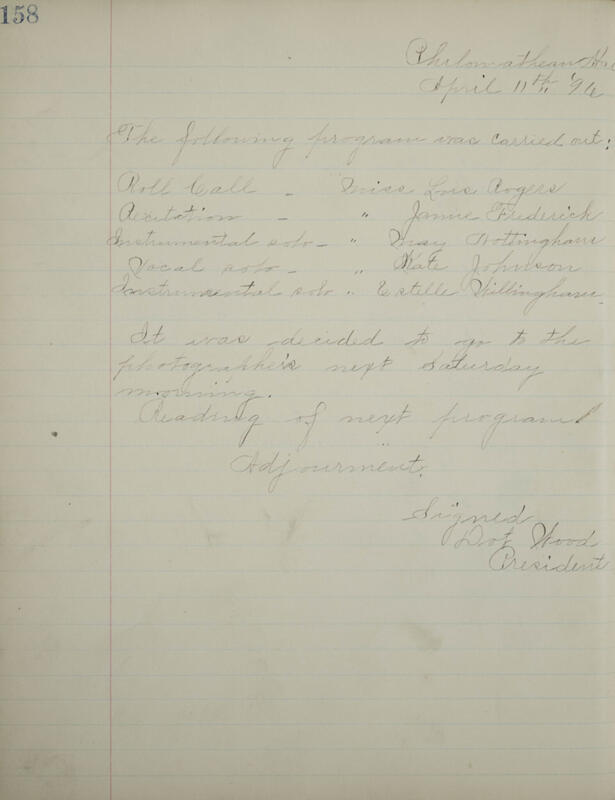 158
Philomathean Hal
April 11th '96
The following program was carried out:
Roll Call - Miss Lois Rogers
Recitation - " Janie Frederick
Instrumental solo - " May Nottingham
Vocal solo - " Kate Johnson
Instrumental solo " Estelle Willingham.
It was decided to go to the
photographer's next Saturday
morning.
Reading of next program
Adjourment.
Signed
Dot Wood
President